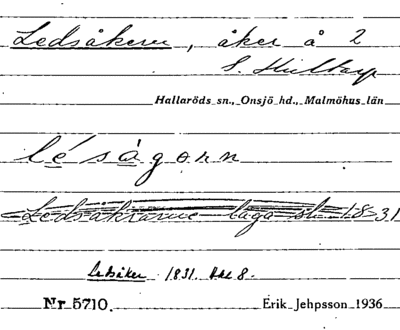 Ledsåkern, åker å 2
S. Hultarp
Hallaröds sn., Onsjö hd., Malmöhus län
léságorn
Ledsåkrarne laga sk. 1831
Ledsåker 1831. Akt 8.
Nr 5710. Erik Jehpsson 1936